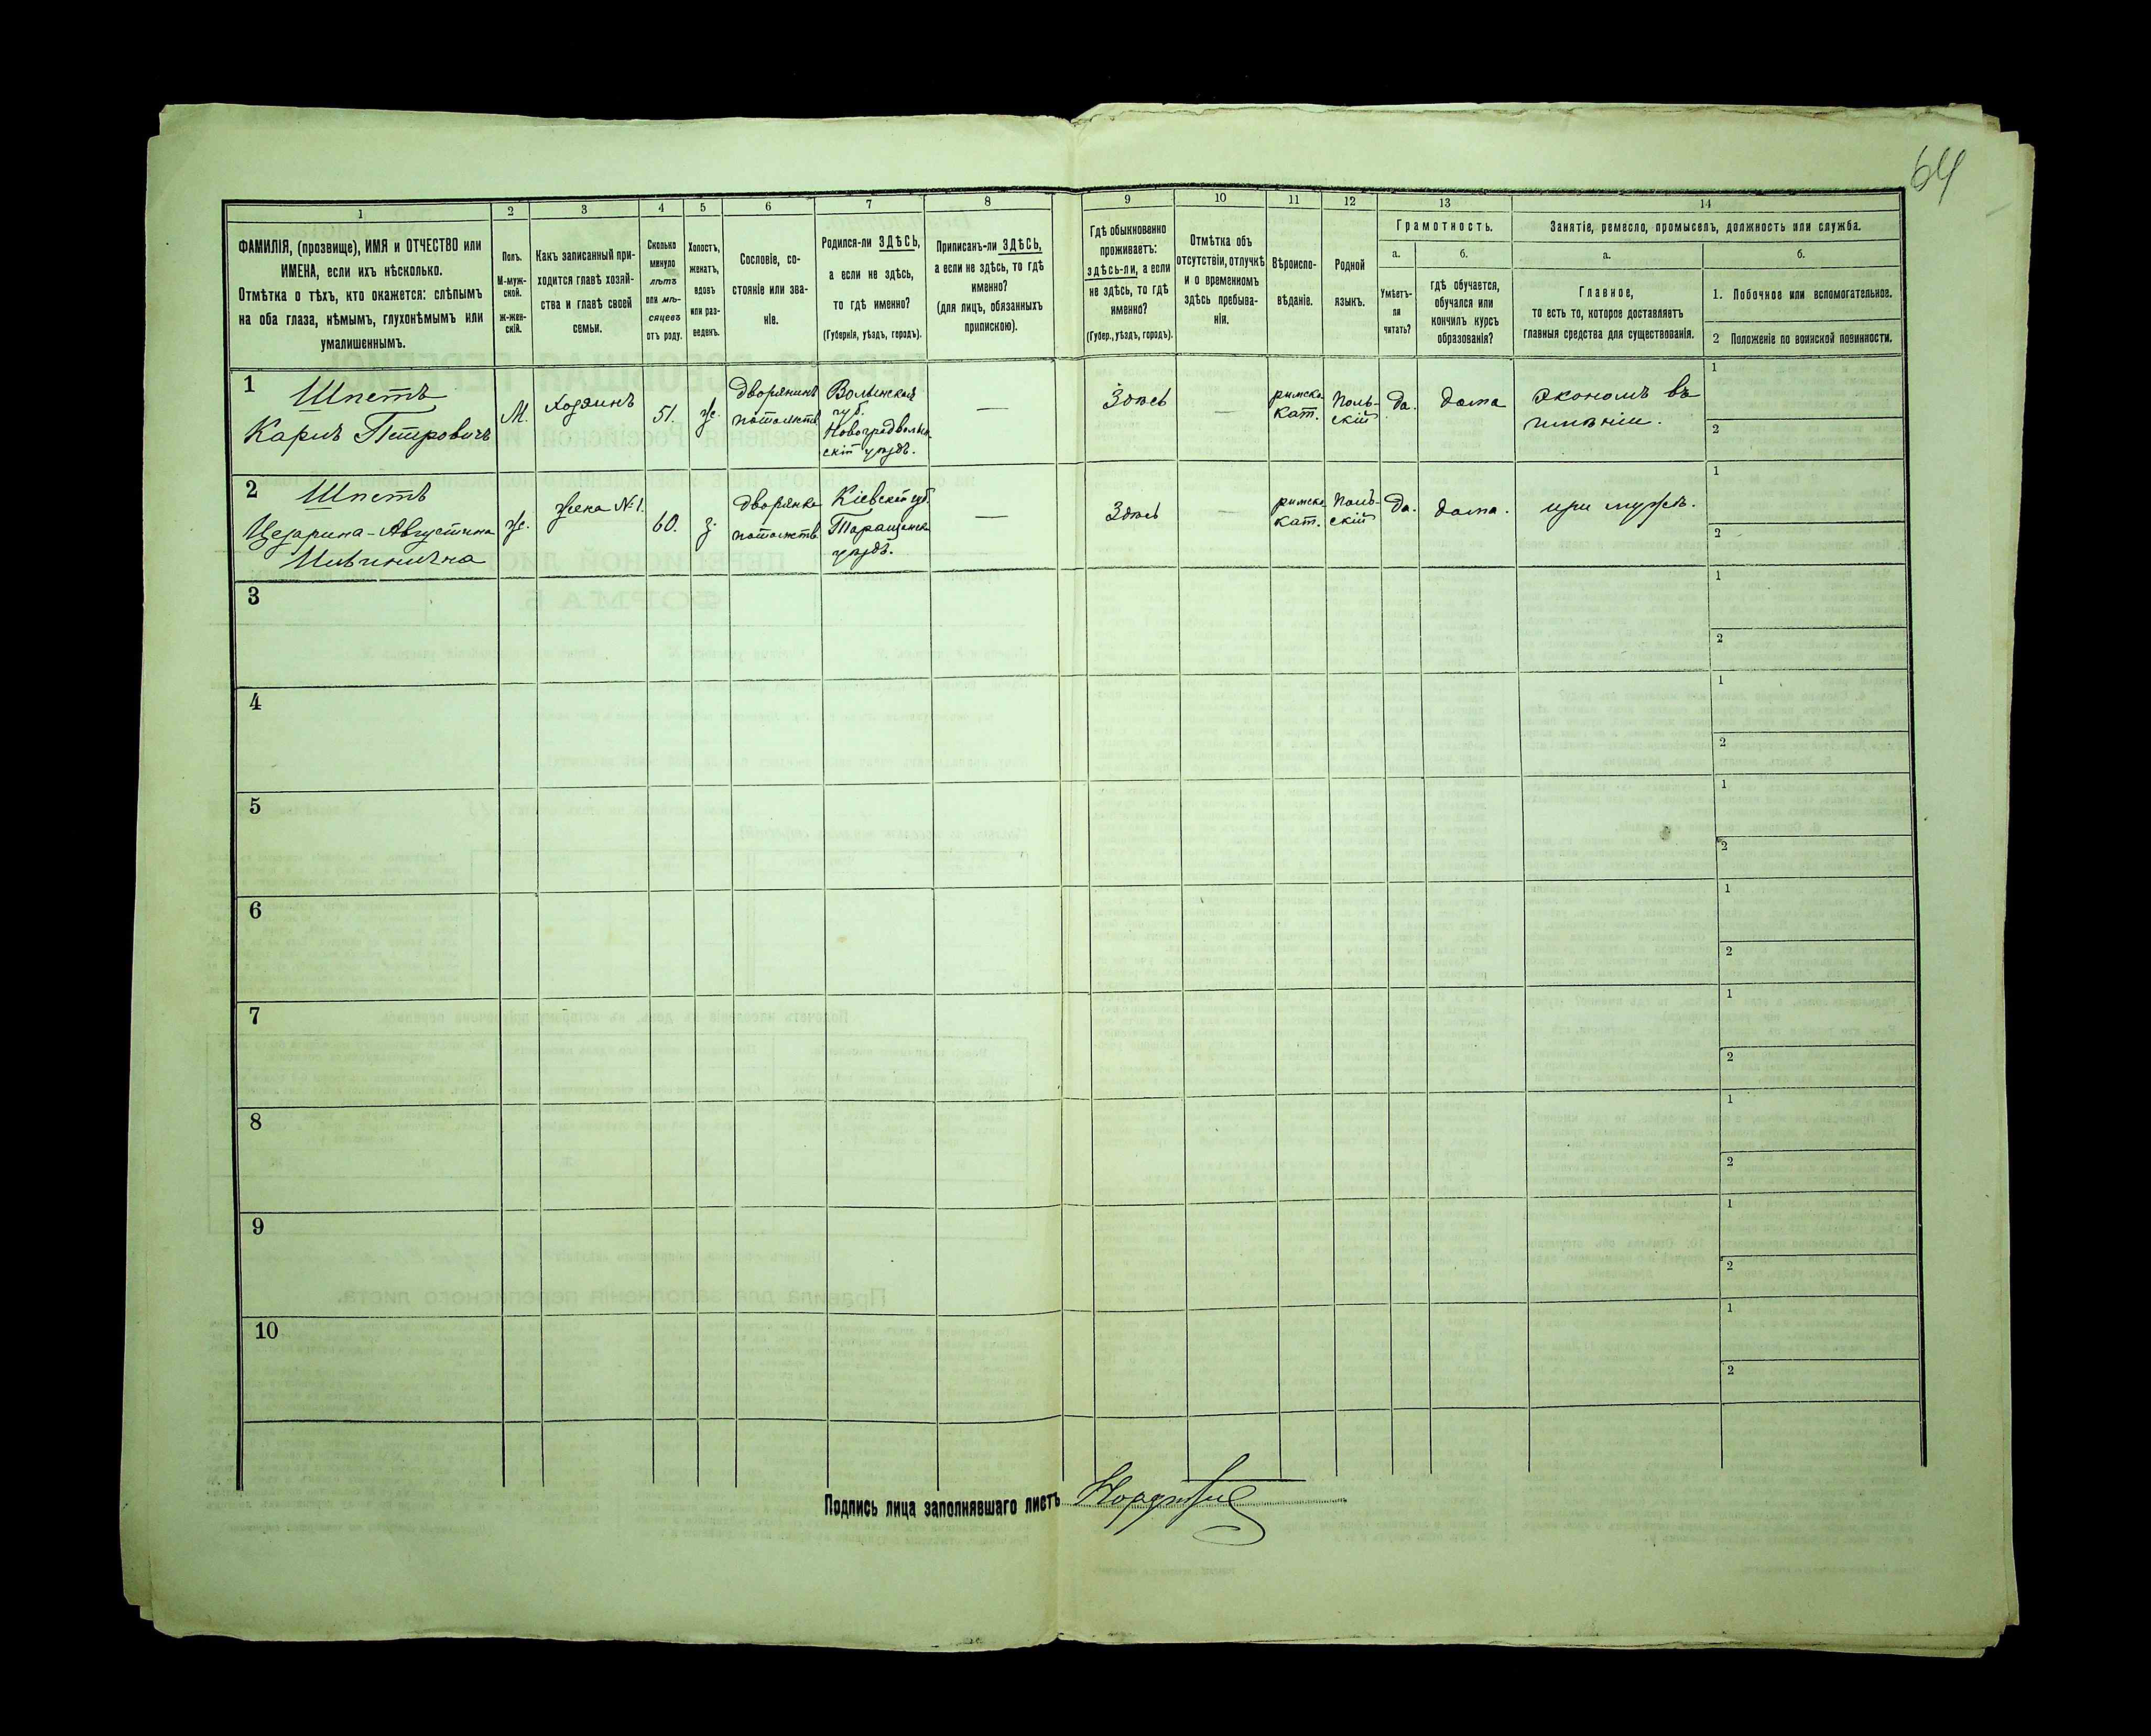 64
1
2
3
4
5
6
7
8
9
10
11
12
13
14
ФАМИЛІЯ, (прозвище), ИМЯ и ОТЧЕСТВО или
ИМЕНА, если ихъ нѣсколько.
Отмѣтка о тѣхъ, кто окажется: слѣпымъ
на оба глаза, нѣмымъ, глухонѣмымъ или
умалишеннымъ.
Полъ.
М-муж-
ской.
ж-жен-
скій.
Какъ записанный при-
ходится главѣ хозяй-
ства и главѣ своей
семьи.
Сколько
минуло
лѣтъ
или мѣ-
сяцевъ
отъ роду.
Холостъ,
женатъ,
вдовъ
или раз-
веденъ.
Сословіе, со-
стояніе или зва-
ніе.
Родился-ли ЗДѢСЬ,
а если не здѣсь,
то гдѣ именно?
(Губернія, уѣздъ, городъ).
Приписанъ-ли ЗДѢСЬ,
а если не здѣсь, то гдѣ
именно?
(для лицъ, обязанныхъ
припискою).
Гдѣ обыкновенно
проживаетъ:
здѣсь-ли, а если
не здѣсь, то гдѣ
именно?
(Губер., уѣздъ, городъ).
Отмѣтка объ
отсутствіи, отлучкѣ
и о временномъ
здѣсь пребыва-
ніи.
Вѣроиспо-
вѣданіе.
Родной
языкъ.
Грамотность.
а.
Умѣетъ-
ли
читать?
б.
гдѣ обучается,
обучался или
кончилъ курсъ
образованія?
Занятіе, ремесло, промыселъ, должность или служба.
а.
Главное,
то есть то, которое доставляетъ
главныя средства для существованія.
б.
1. Побочное или вспомогательное.
2 Положеніе по воинской повинности.
1
Шпетъ
Карлъ Петровичъ
М.
Хозяинъ
51.
ж.
дворянинъ
потомств.
Волынская
губ.
Новоградволын-
скій уѣздъ.
—
Здѣсь
—
римско
кат.
Поль-
скій
Да.
дома
экономъ въ
имѣніи.
1
2
2
Шпетъ
Цезарина-Августина
ж.
жена №1.
60.
з.
дворянка
потомств.
Кіевской губ.
Таращанск.
уѣздъ.
—
Здѣсь
—
римско
кат.
Поль-
скій
Да.
дома.
при мужѣ.
1
2
3
1
2
4
1
2
5
1
2
6
1
2
7
1
2
8
1
2
9
1
2
10
1
2
Подпись лица заполнявшаго листъ